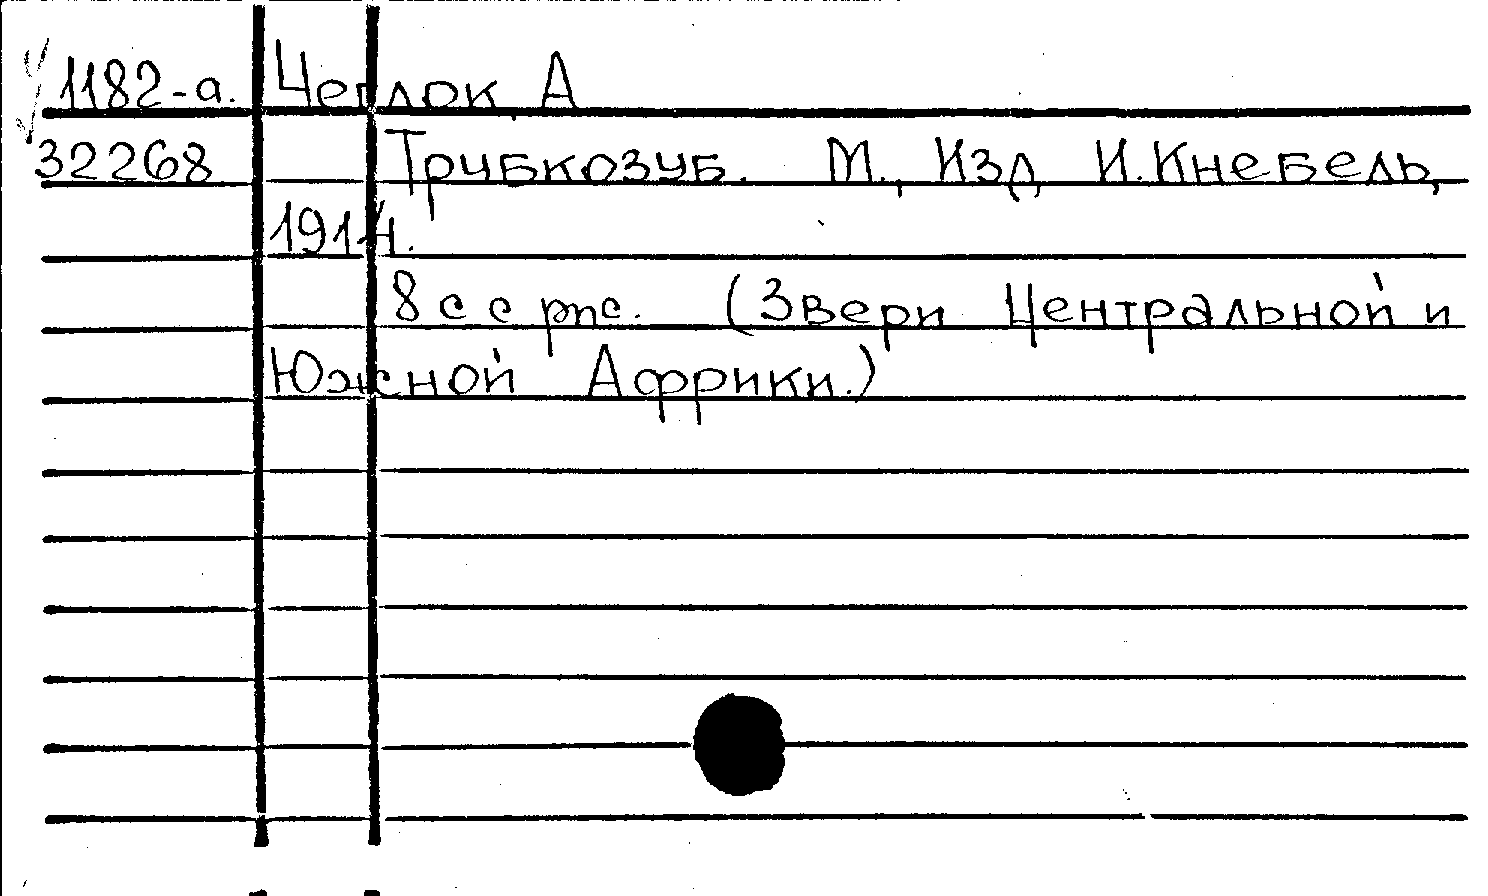 1182-а. Чеглок А
32268 Трубкозуб. М., Изд И.Кнебель,
1914.
8 с с рис. (Звери Центральной и
Южной Африки.)